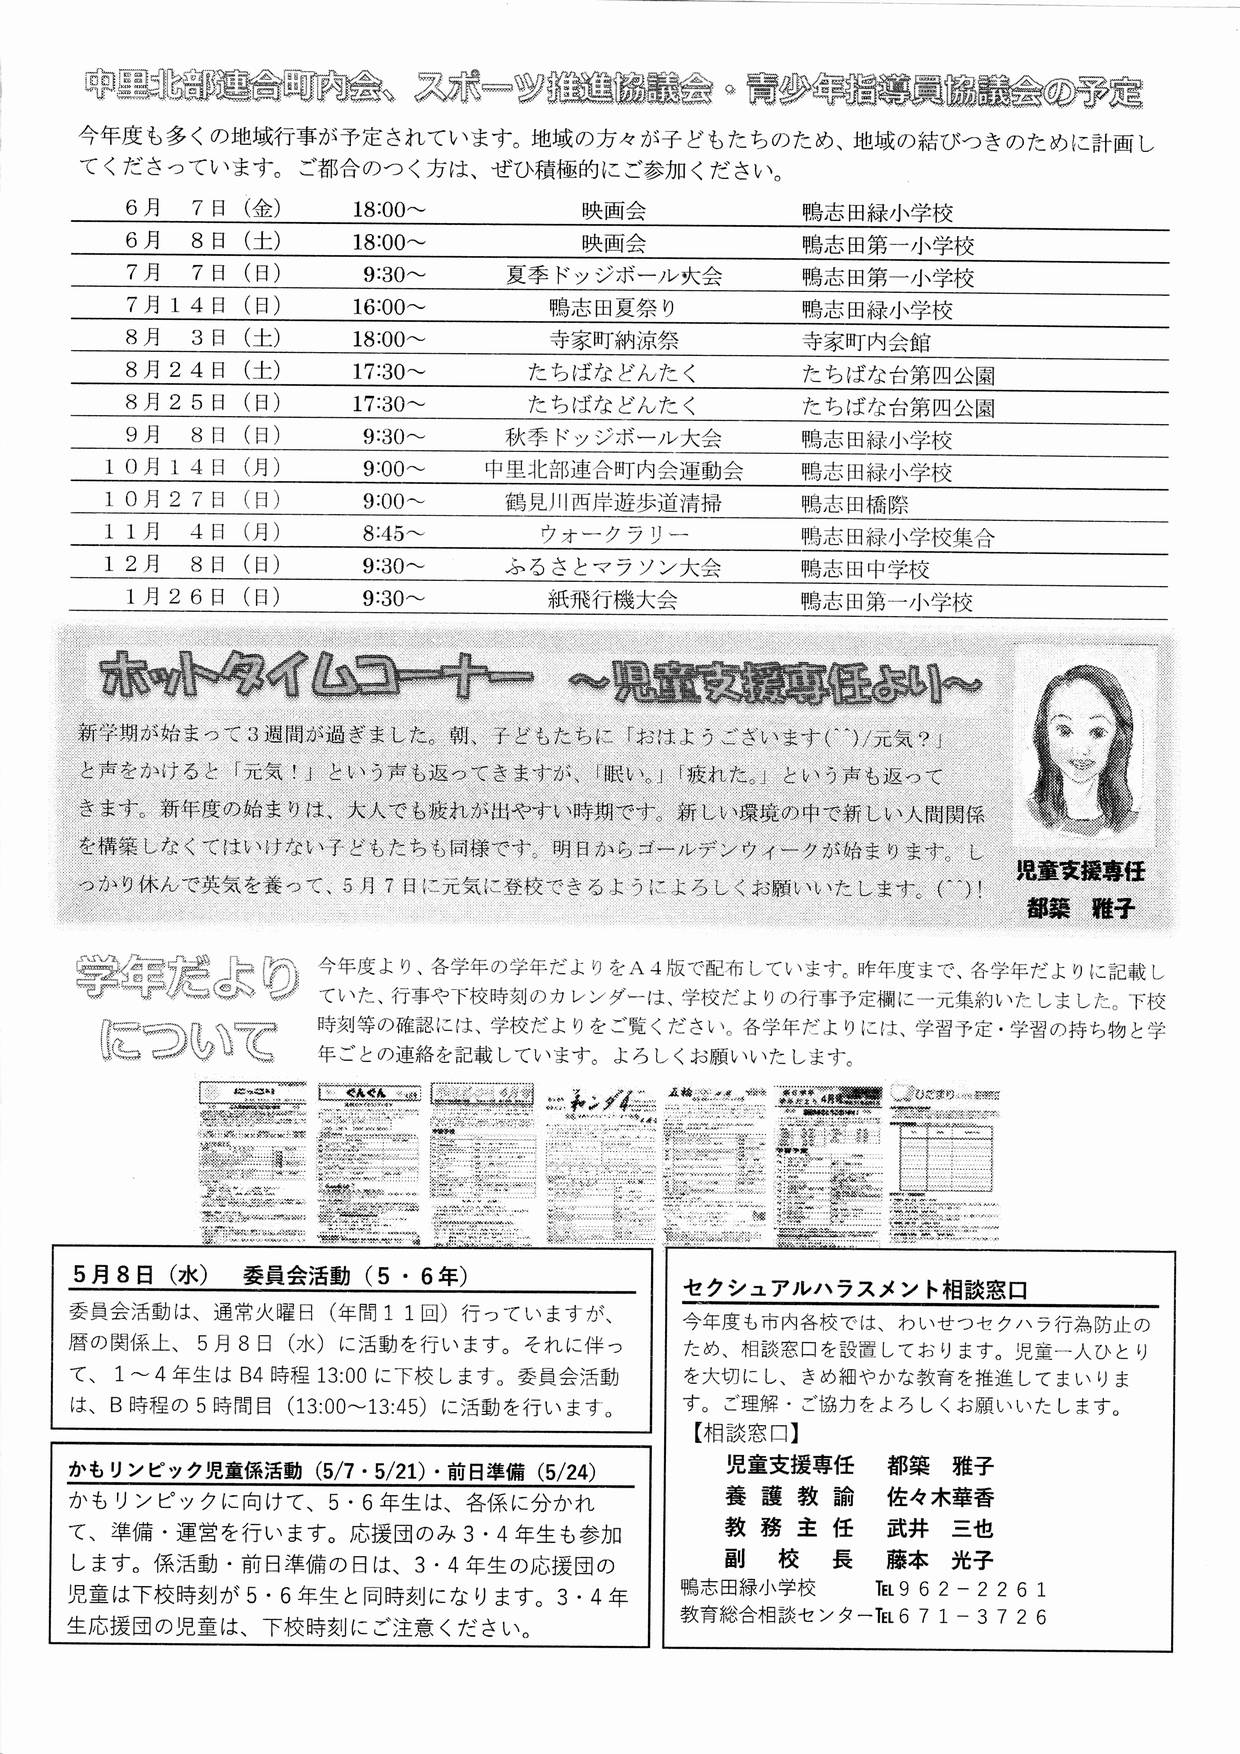 中里北部連合町内会、スポーツ推進協議会・青少年指導員協議会の予定
今年度も多くの地域行事が予定されています。地域の方々が子どもたちのため、地域の結びつきのために計画し
てくださっています。ご都合のつく方は、ぜひ積極的にご参加ください。
６月　７日（金） 18:00～ 映画会 鴨志田緑小学校
６月　８日（土） 18:00～ 映画会 鴨志田第一小学校
７月　７日（日） 9:30～ 夏季ドッジボール大会 鴨志田第一小学校
７月１４日（日） 16:00～ 鴨志田夏祭り 鴨志田緑小学校
８月　３日（土） 18:00～ 寺家町納涼祭 寺家町内会館
８月２４日（土） 17:30～ たちばなどんたく たちばな台第四公園
８月２５日（日） 17:30～ たちばなどんたく たちばな台第四公園
９月　８日（日） 9:30～ 秋季ドッジボール大会 鴨志田緑小学校
１０月１４日（月） 9:00～ 中里北部連合町内会運動会 鴨志田緑小学校
１０月２７日（日） 9:00～ 鶴見川西岸遊歩道清掃 鴨志田橋際
１１月　４日（月） 8:45～ ウォークラリー 鴨志田緑小学校集合
１２月　８日（日） 9:30～ ふるさとマラソン大会 鴨志田中学校
１月２６日（日） 9:30～ 紙飛行機大会 鴨志田第一小学校
ホットタイムコーナー　～児童支援専任より～
新学期が始まって３週間が過ぎました。朝、子どもたちに「おはようございます(^^)/元気？」
と声をかけると「元気！」という声も返ってきますが、「眠い。」「疲れた。」という声も返って
きます。新年度の始まりは、大人でも疲れが出やすい時期です。新しい環境の中で新しい人間関係
を構築しなくてはいけない子どもたちも同様です。明日からゴールデンウィークが始まります。し
っかり休んで英気を養って、５月７日に元気に登校できるようによろしくお願いいたします。(^^)!
児童支援専任
都築　雅子
学年だより
について
今年度より、各学年の学年だよりをＡ４版で配布しています。昨年度まで、各学年だよりに記載し
ていた、行事や下校時刻のカレンダーは、学校だよりの行事予定欄に一元集約いたしました。下校
時刻等の確認には、学校だよりをご覧ください。各学年だよりには、学習予定・学習の持ち物と学
年ごとの連絡を記載しています。よろしくお願いいたします。
にっこり
ぐんぐん
ひだまり
５月８日（水）　委員会活動（５・６年）
委員会活動は、通常火曜日（年間１１回）行っていますが、
暦の関係上、５月８日（水）に活動を行います。それに伴っ
て、１～４年生は B4 時程 13:00 に下校します。委員会活動
は、Ｂ時程の５時間目（13:00～13:45）に活動を行います。
かもリンピック児童係活動（5/7・5/21）・前日準備（5/24）
かもリンピックに向けて、５・６年生は、各係に分かれ
て、準備・運営を行います。応援団のみ３・４年生も参加
します。係活動・前日準備の日は、３・４年生の応援団の
児童は下校時刻が５・６年生と同時刻になります。３・４年
生応援団の児童は、下校時刻にご注意ください。
セクシュアルハラスメント相談窓口
今年度も市内各校では、わいせつセクハラ行為防止の
ため、相談窓口を設置しております。児童一人ひとり
を大切にし、きめ細やかな教育を推進してまいりま
す。ご理解・ご協力をよろしくお願いいたします。
【相談窓口】
児童支援専任　都築　雅子
養護教諭　佐々木華香
教務主任　武井　三也
副校長　藤本　光子
鴨志田緑小学校　℡９６２－２２６１
教育総合相談センター℡６７１－３７２６